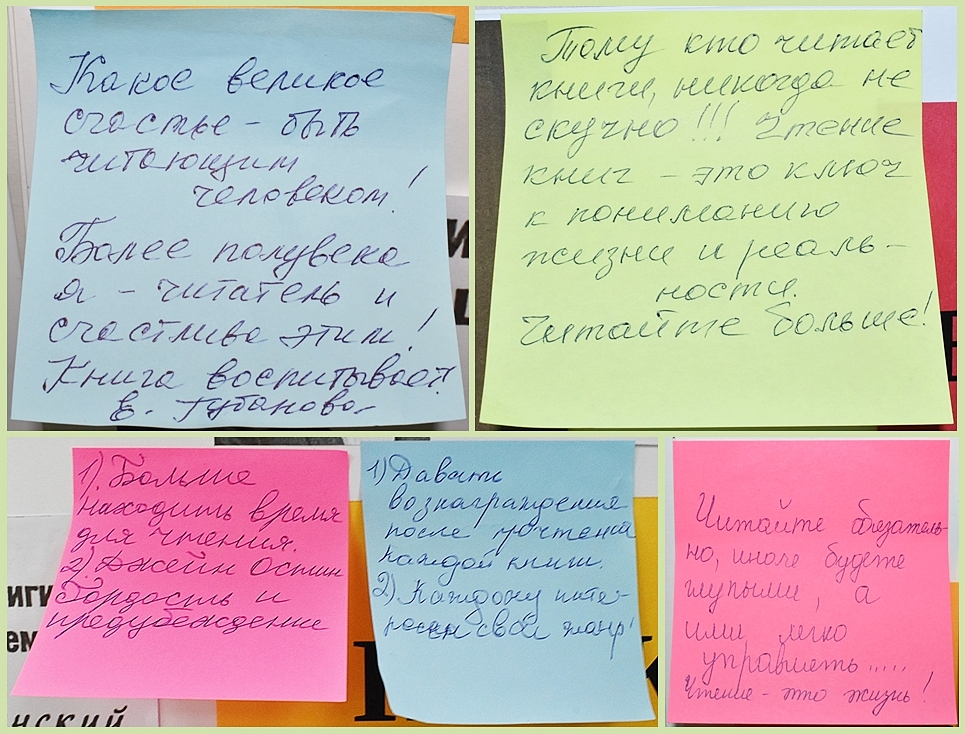 Какое великое
счастье - быть
читающим
человеком!
Более полувека
я - читатель и
счастлива этим!
Книга воспитывает
Е. Губанова
Тому кто читает
книги, никогда не
скучно!!! Чтение
книг - это ключ
к пониманию
жизни и реаль-
ности.
Читайте больше!
1). Больше
находить время
для чтения.
2) Джейн Остин
Гордость и
предубеждение
1) Давать
вознаграждения
после прочтения
каждой книги.
2) Каждому инте-
ресен свой жанр!
Читайте обязатель-
но, иначе будете
глупыми, а
ими легко
управлять.....
Чтение - это жизнь!